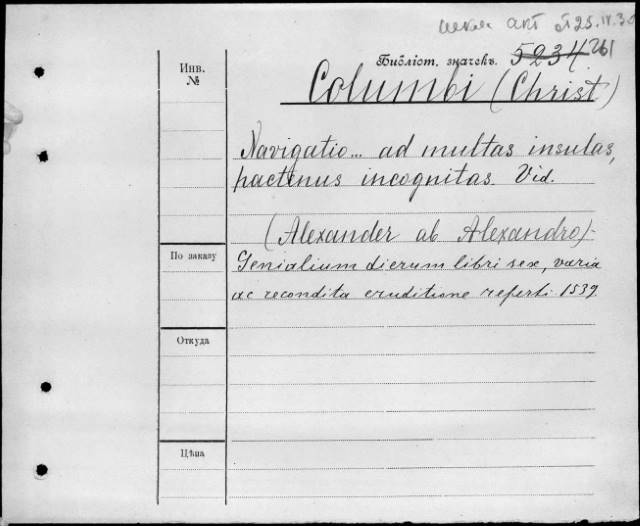 акт от 25.IV.3
Библіот. значекъ. 5234
Инв.
№
Columbi (Christ)
Navigatio... ad multas insulas,
hactenus incognitas. Vid.
(Alexander ab Alexandro)-
По заказу
Genialium dierum libri sex, varia
ac recondita eruditione referti. 1539.
Откуда
Цѣна